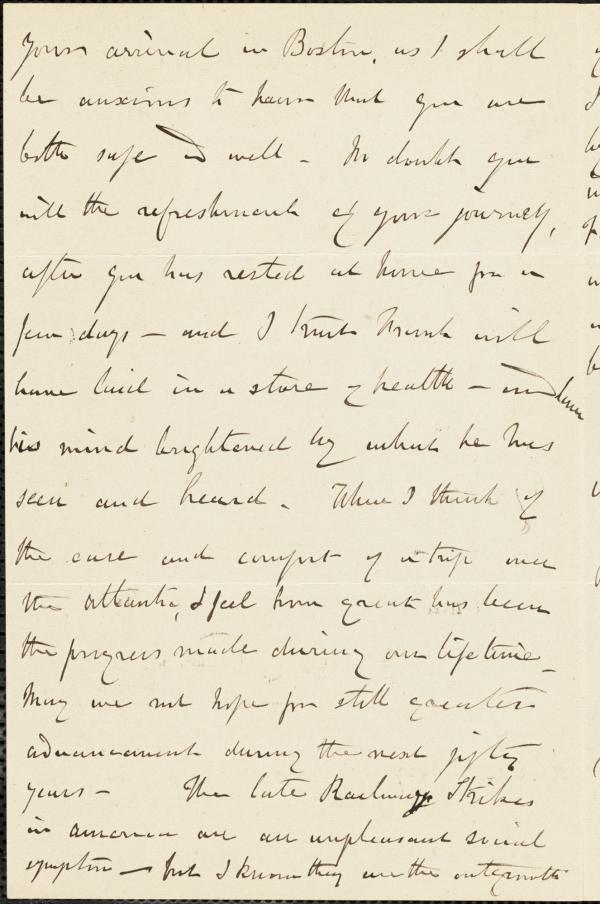 your arrival in Boston, as I shall
be anxious to hear that you are
both safe and well - No doubt you
will the refreshment of your journey,
after you has rested at home for a
few days - and I trust Frank will
have laid in a store of health - and have
his mind brightened by what he has
seen and heard. When I think of
the ease and comfort of a trip over
the Atlantic, I feel how great has been
the progress made during our lifetime -
May we not hope for still greater
advancement during the next fifty
years - The late Railway Strikes
in America are an unpleasant social
symptom - but I know they are the outgrowth